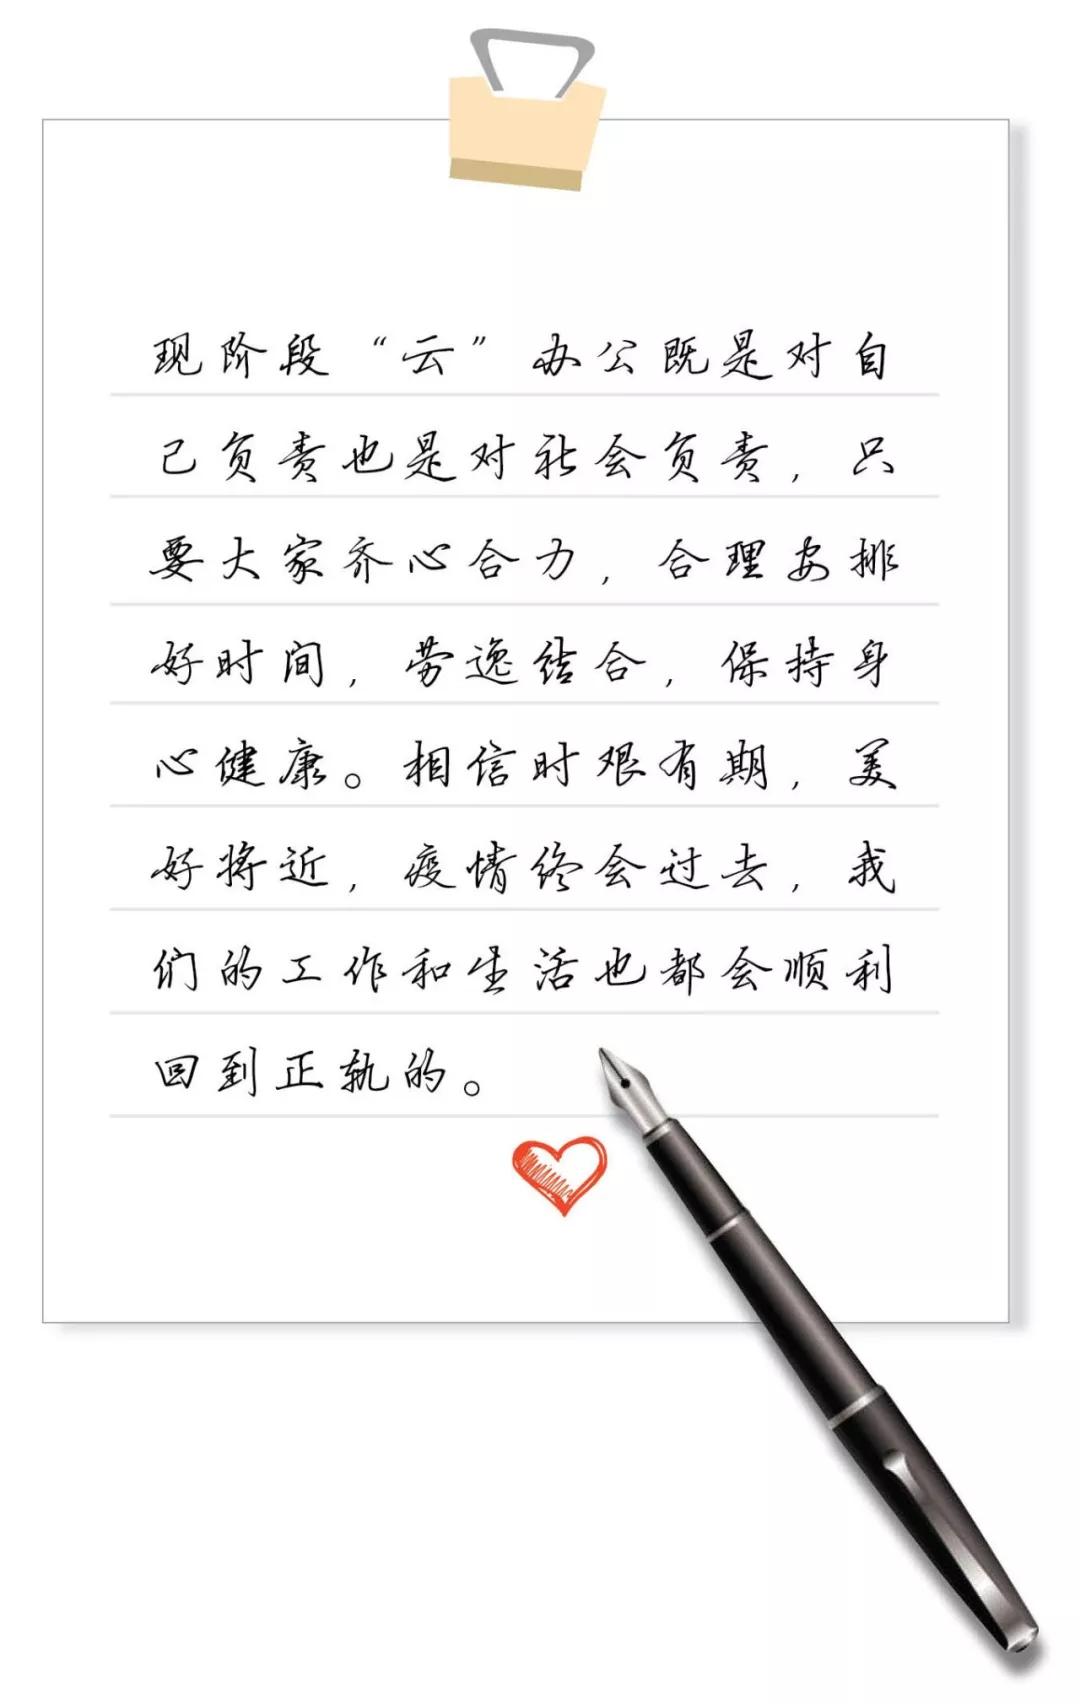 现阶段“云”办公既是对自
己负责也是对社会负责，只
要大家齐心合力，合理安排
好时间，劳逸结合，保持身
心健康。相信时艰有期，美
好将近，疫情终会过去，我
们的工作和生活也都会顺利
回到正轨的。